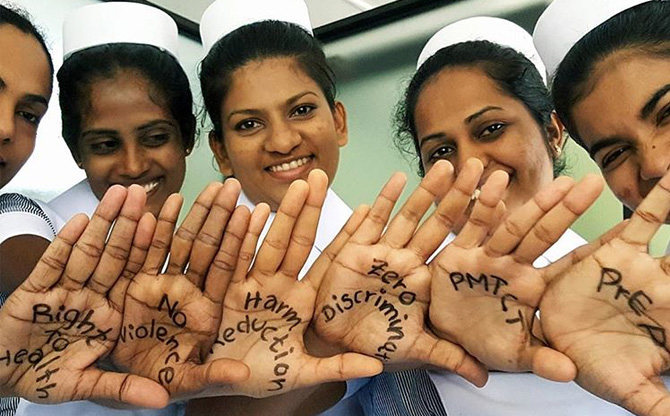 Right
to
Health
No
violence
Harm
reduction
Zero
Discrimination
PMTCT
PrEP